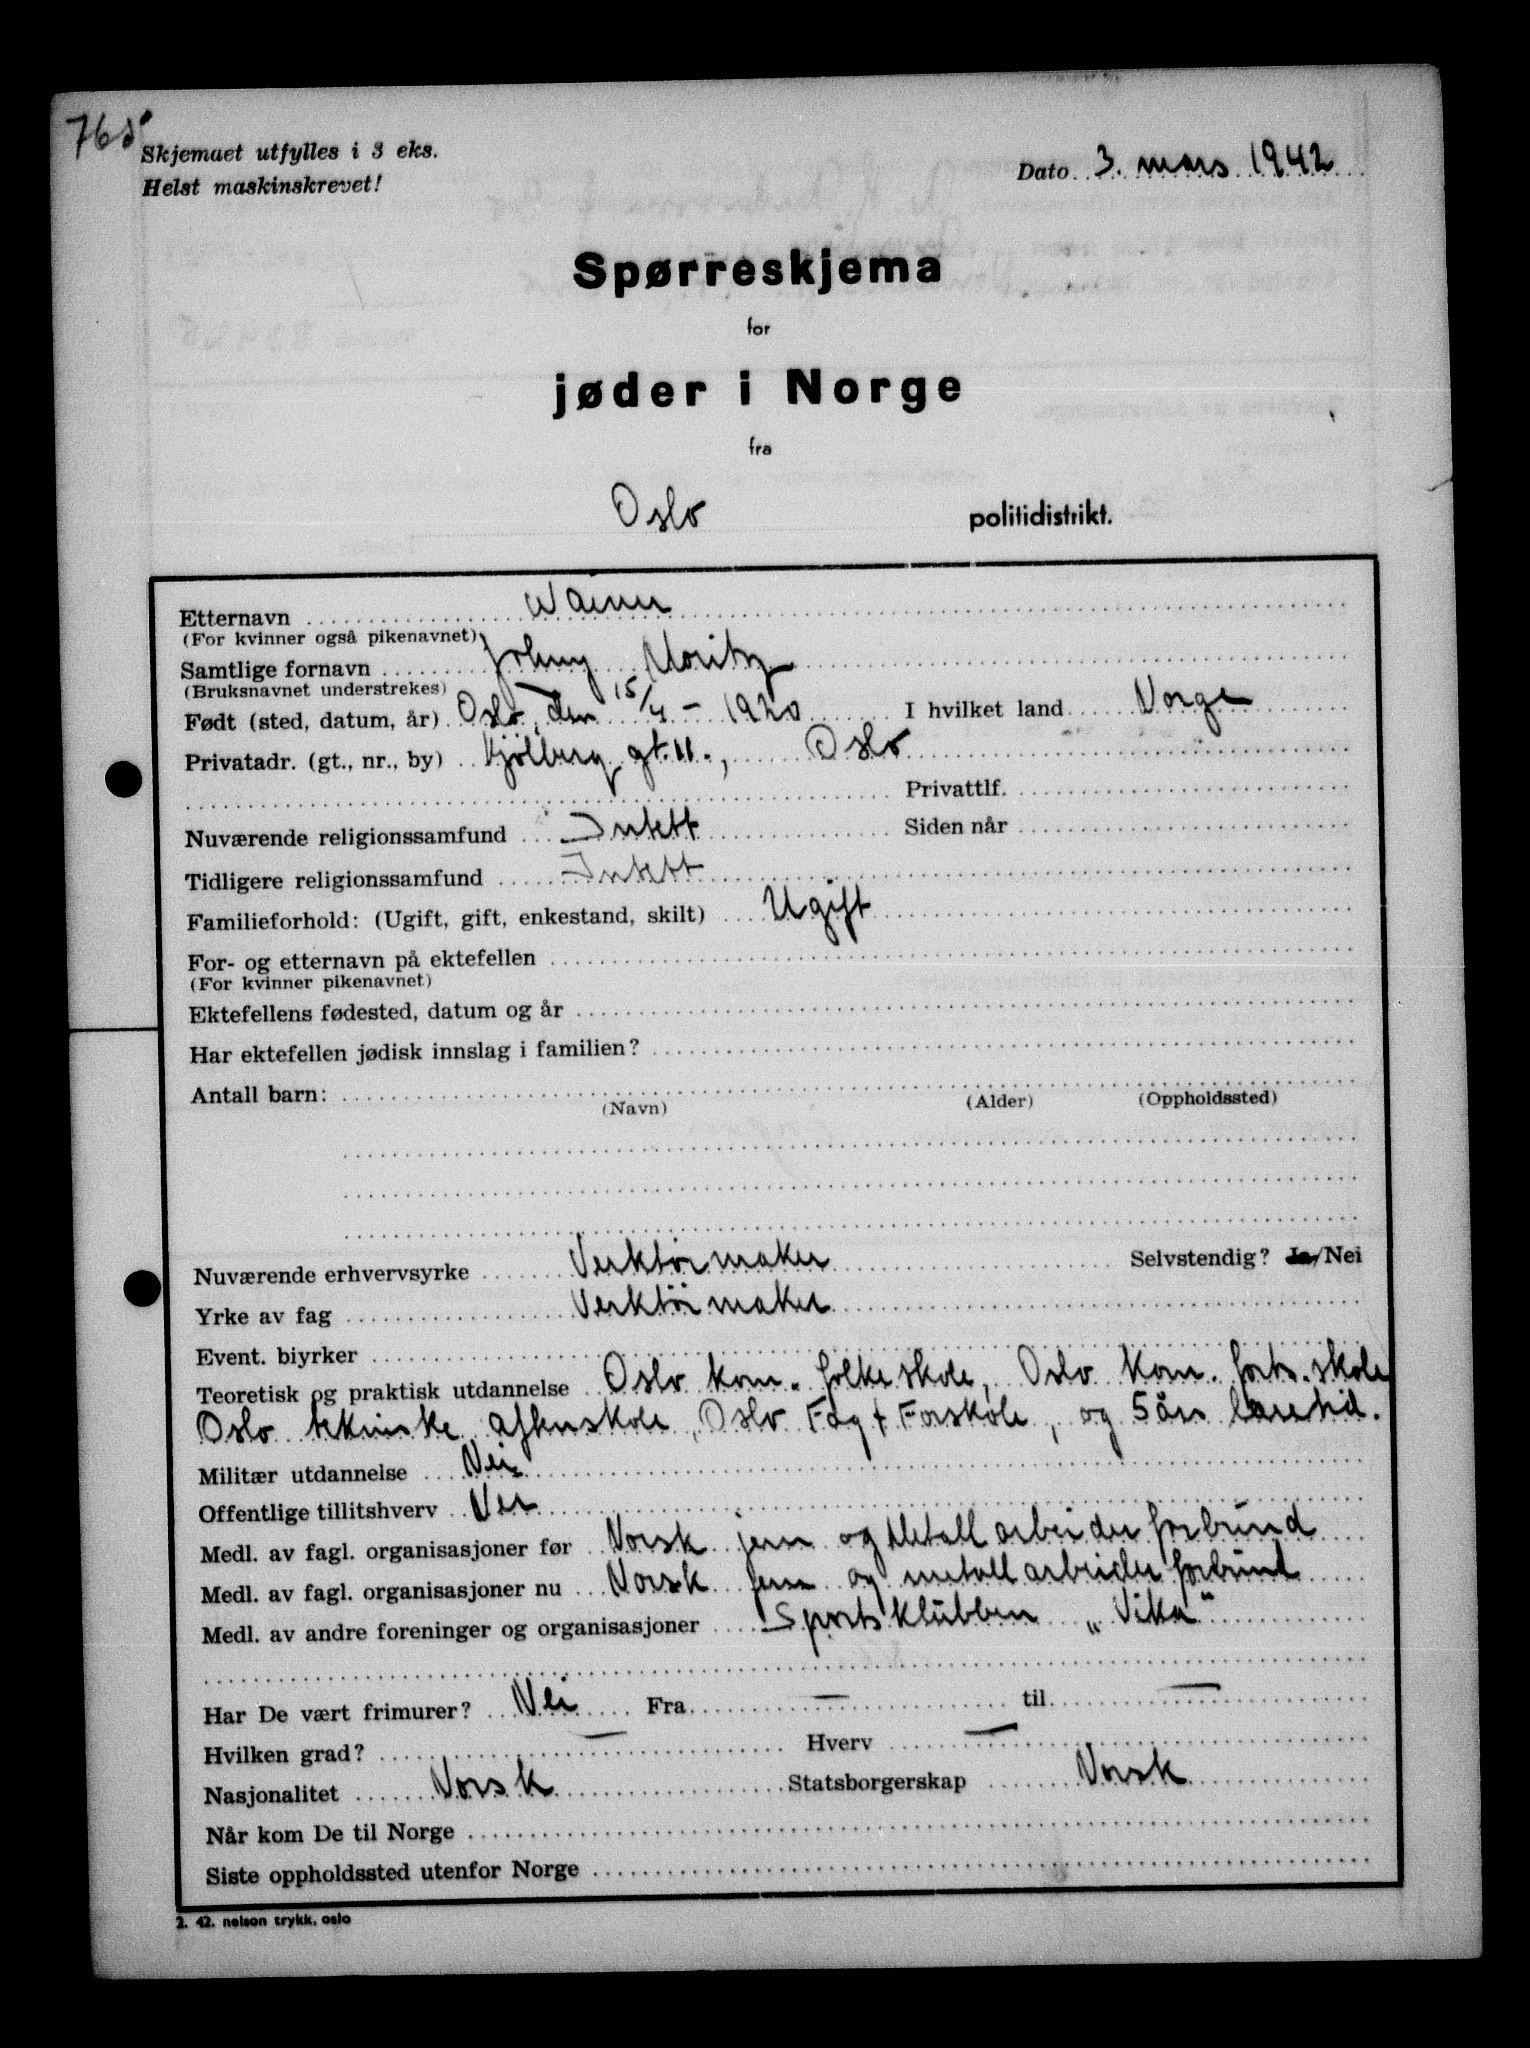 765
Skjemaet utfylles i 3 eks.
Helst maskinskrevet!
Dato 3. mars 1942
Spørreskjema
for
jøder i Norge
fra
Oslo politidistrikt.
Etternavn
(For kvinner også pikenavnet)
Samtlige fornavn Johny Moritz
(Bruksnavnet understrekes)
Født (sted, datum, år) Oslo, den 15/4 - 1920 I hvilket land Norge
Privatadr. (gt., nr., by) Kjölberg gt. 11., Oslo
Privattlf.
Nuværende religionssamfund Intett Siden når
Tidligere religionssamfund Intett
Familieforhold: (Ugift, gift, enkestand, skilt) Ugift
For- og etternavn på ektefellen
(For kvinner pikenavnet)
Ektefellens fødested, datum og år
Har ektefellen jødisk innslag i familien?
Antall barn:
(Navn) (Alder) (Oppholdssted)
Nuværende erhvervsyrke Verktörmaker Selvstendig? Ja/Nei
Yrke av fag Verktörmaker
Event. biyrker
Teoretisk og praktisk utdannelse Oslo kom. folkeskole, Oslo kom. forts. skole
Oslo tekniske aftenskole, Oslo Fag + Forskole, og 5 års læretid.
Militær utdannelse Nei
Offentlige tillitshverv Nei
Medl. av fagl. organisasjoner før Norsk jern og Metall arbeider forbund
Medl. av fagl. organisasjoner nu Norsk jern og metall arbeider forbund
Medl. av andre foreninger og organisasjoner Sportsklubben „Vika"
Har De vært frimurer? Nei Fra — til —
Hvilken grad? — Hverv —
Nasjonalitet Norsk Statsborgerskap Norsk
Når kom De til Norge
Siste oppholdssted utenfor Norge
2. 42. nelson trykk, oslo